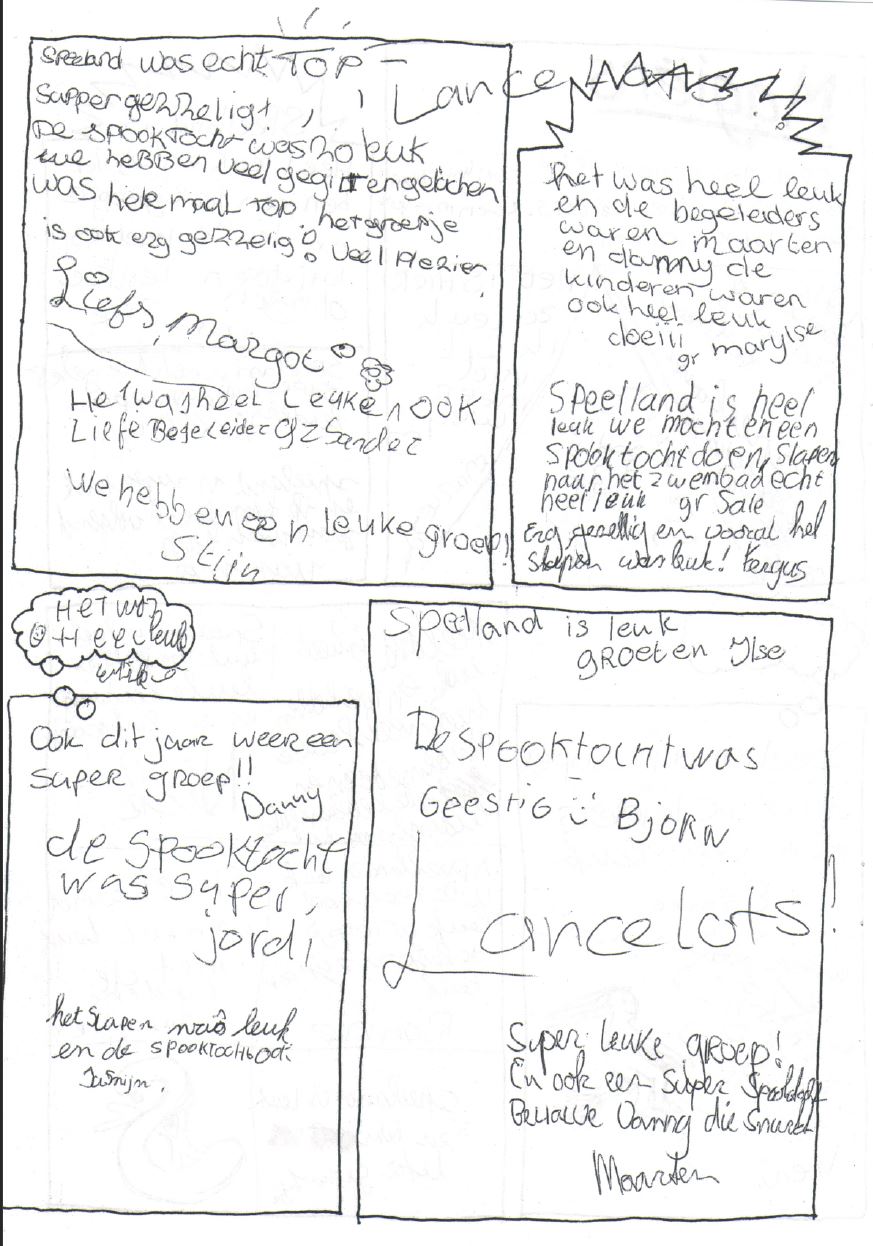 Speeland was echt TOP
Supper gezzheligt
De spooktocht was zo leuk
we hebben veel gegit en gelachen
was helemaal TOP het groepje
is ook erg gezzelig! veel plezier
Liefs, Margot
Het was heel Leuk en OOK
Liefe Begeleider Gz Sander
We hebben een leuke groep!
Stijn
Lancelots!
het was heel leuk
en de begeleiders
waren maarten
en danny de
kinderen waren
ook heel leuk
doeiii
gr marylse
Speelland is heel
leuk we mochten een
spooktocht doen, Slapen
naar het zwembad echt
heel leuk gr Sale
Erg gezellig en vooral het
slapen was leuk! Fergus
Het was
Heel leuk
Ook dit jaar weer een
super groep!!
Danny
de spooktocht
was super,
jordi
het slapen was leuk
en de spooktocht ook
Jasmijn.
Speelland is leuk
GROETEN Ilse
De spooktocht was
Geestig :) Bjorn
Lancelots!
Super leuke groep!
En ook een super spooktocht
Behalve Danny die snurkt
Maarten